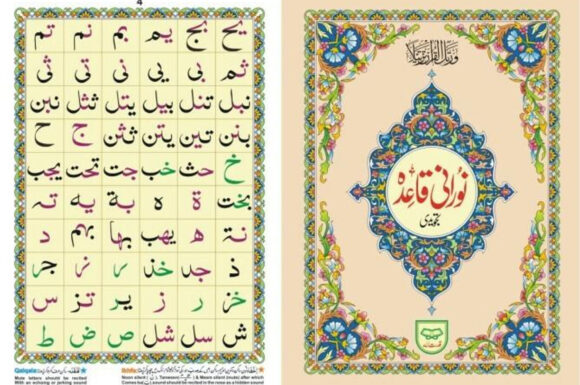 4
يح بج يم بم نم تم
ثم بي يي ني تي ثي
نبل تنل بيل يتل نثل نبن
بنن تين يتن ثثن ج ح
خ حث خب جت تحت يجب
بخت ة ه بة يه تہ
نة ه يهب بها بهم د
ذ جد خذ ر نر جر
خز ر ز ير تز س
ش سل شل ص ض ط
Qalqala:
Mute letters should be recited
With an echoing or jerking sound
Ikhfa:
Noon silent Tanween & Meem silent (mute) after which
Comes sound should be recited in the nose as a hidden sound
ورتل القرآن ترتيلا
نورانی قاعدہ
تجویدی